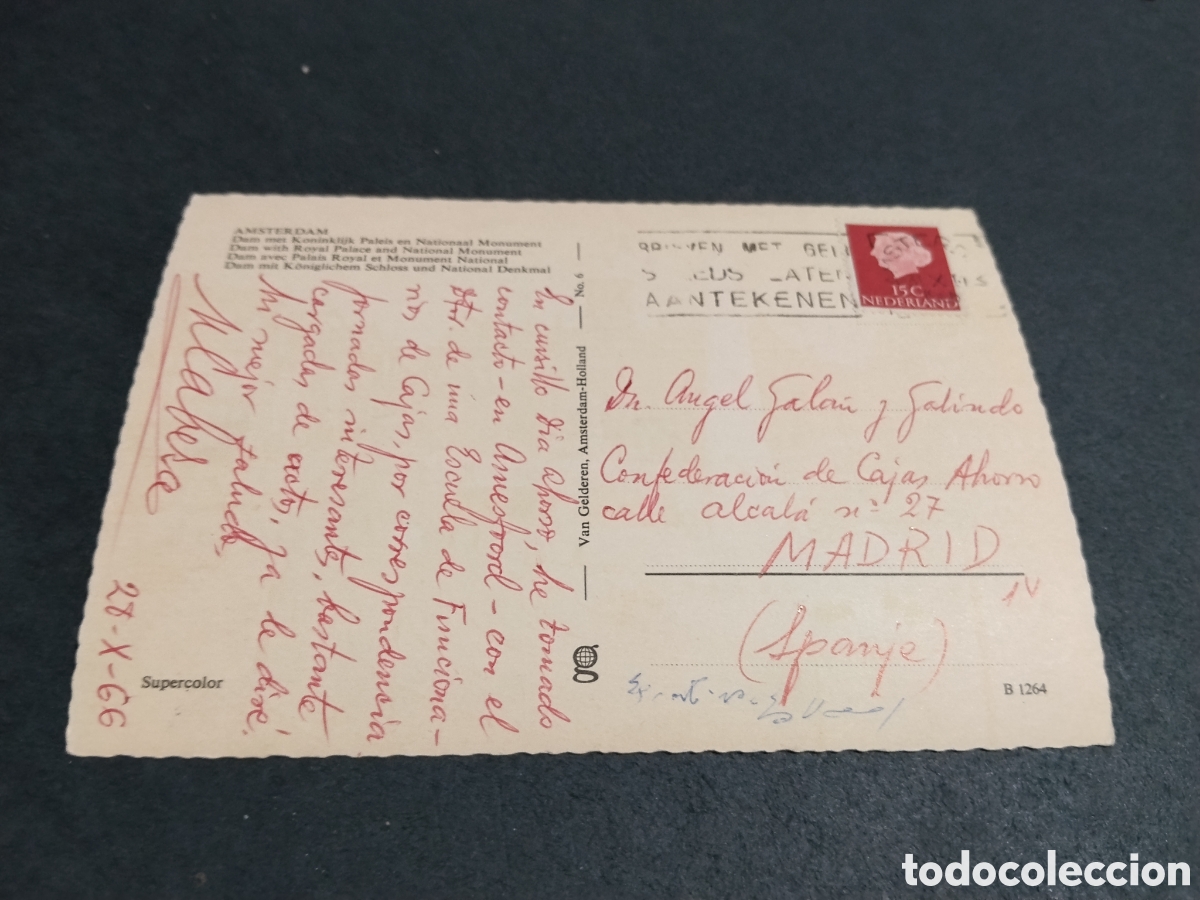 AMSTERDAM
Dam met Koninklijk Paleis en Nationaal Monument
Dam with Royal Palace and National Monument
Dam avec Palais Royal et Monument National
Dam mit Königlichem Schloss und National Denkmal
En cursillo Dia ahorro, he tomado
contacto - en Amesfoord - con el
de una Escuela de Funciona-
rios de Cajas, por correspondencia
Jornadas interesantes, bastante
cargadas de exito, ya le diré.
Mi mejor saludo,
28-X-66
Supercolor
Van Gelderen, Amsterdam-Holland
No. 6
MET GEL
AANTEKENEN
15 C
NEDERLAND
Dn. Angel Galán y Galindo
Confederación de Cajas Ahorro
calle alcalá nº 27
MADRID
14
(Spanje)
B 1264
todocoleccion